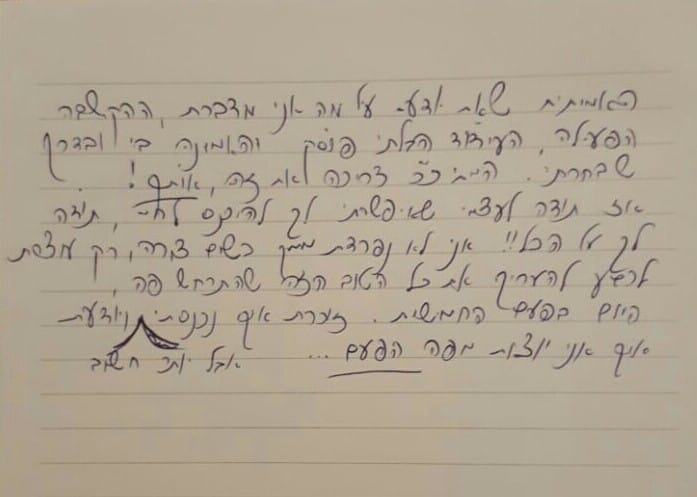 האמיתית שאת יודעת על מה אני מדברת, ההקשבה
הפעילה, העידוד הבלתי פוסק והאמונה בי ובדרך
שבחרתי. הייתי כ"כ צריכה את זה, אותך!
אז תודה לעצמי שאיפשרתי לך להיכנס לחיי, תודה
לך על הכל!! אני לא נפרדת ממך בשום צורה, רק עוצרת
לרגע להעריך את כל הטוב הזה שהתרחש פה,
היום בפעם החמישית. זוכרת איך נכנסתי ויודעת
איך אני יוצאת מפה הפעם... אבל יותר חשוב